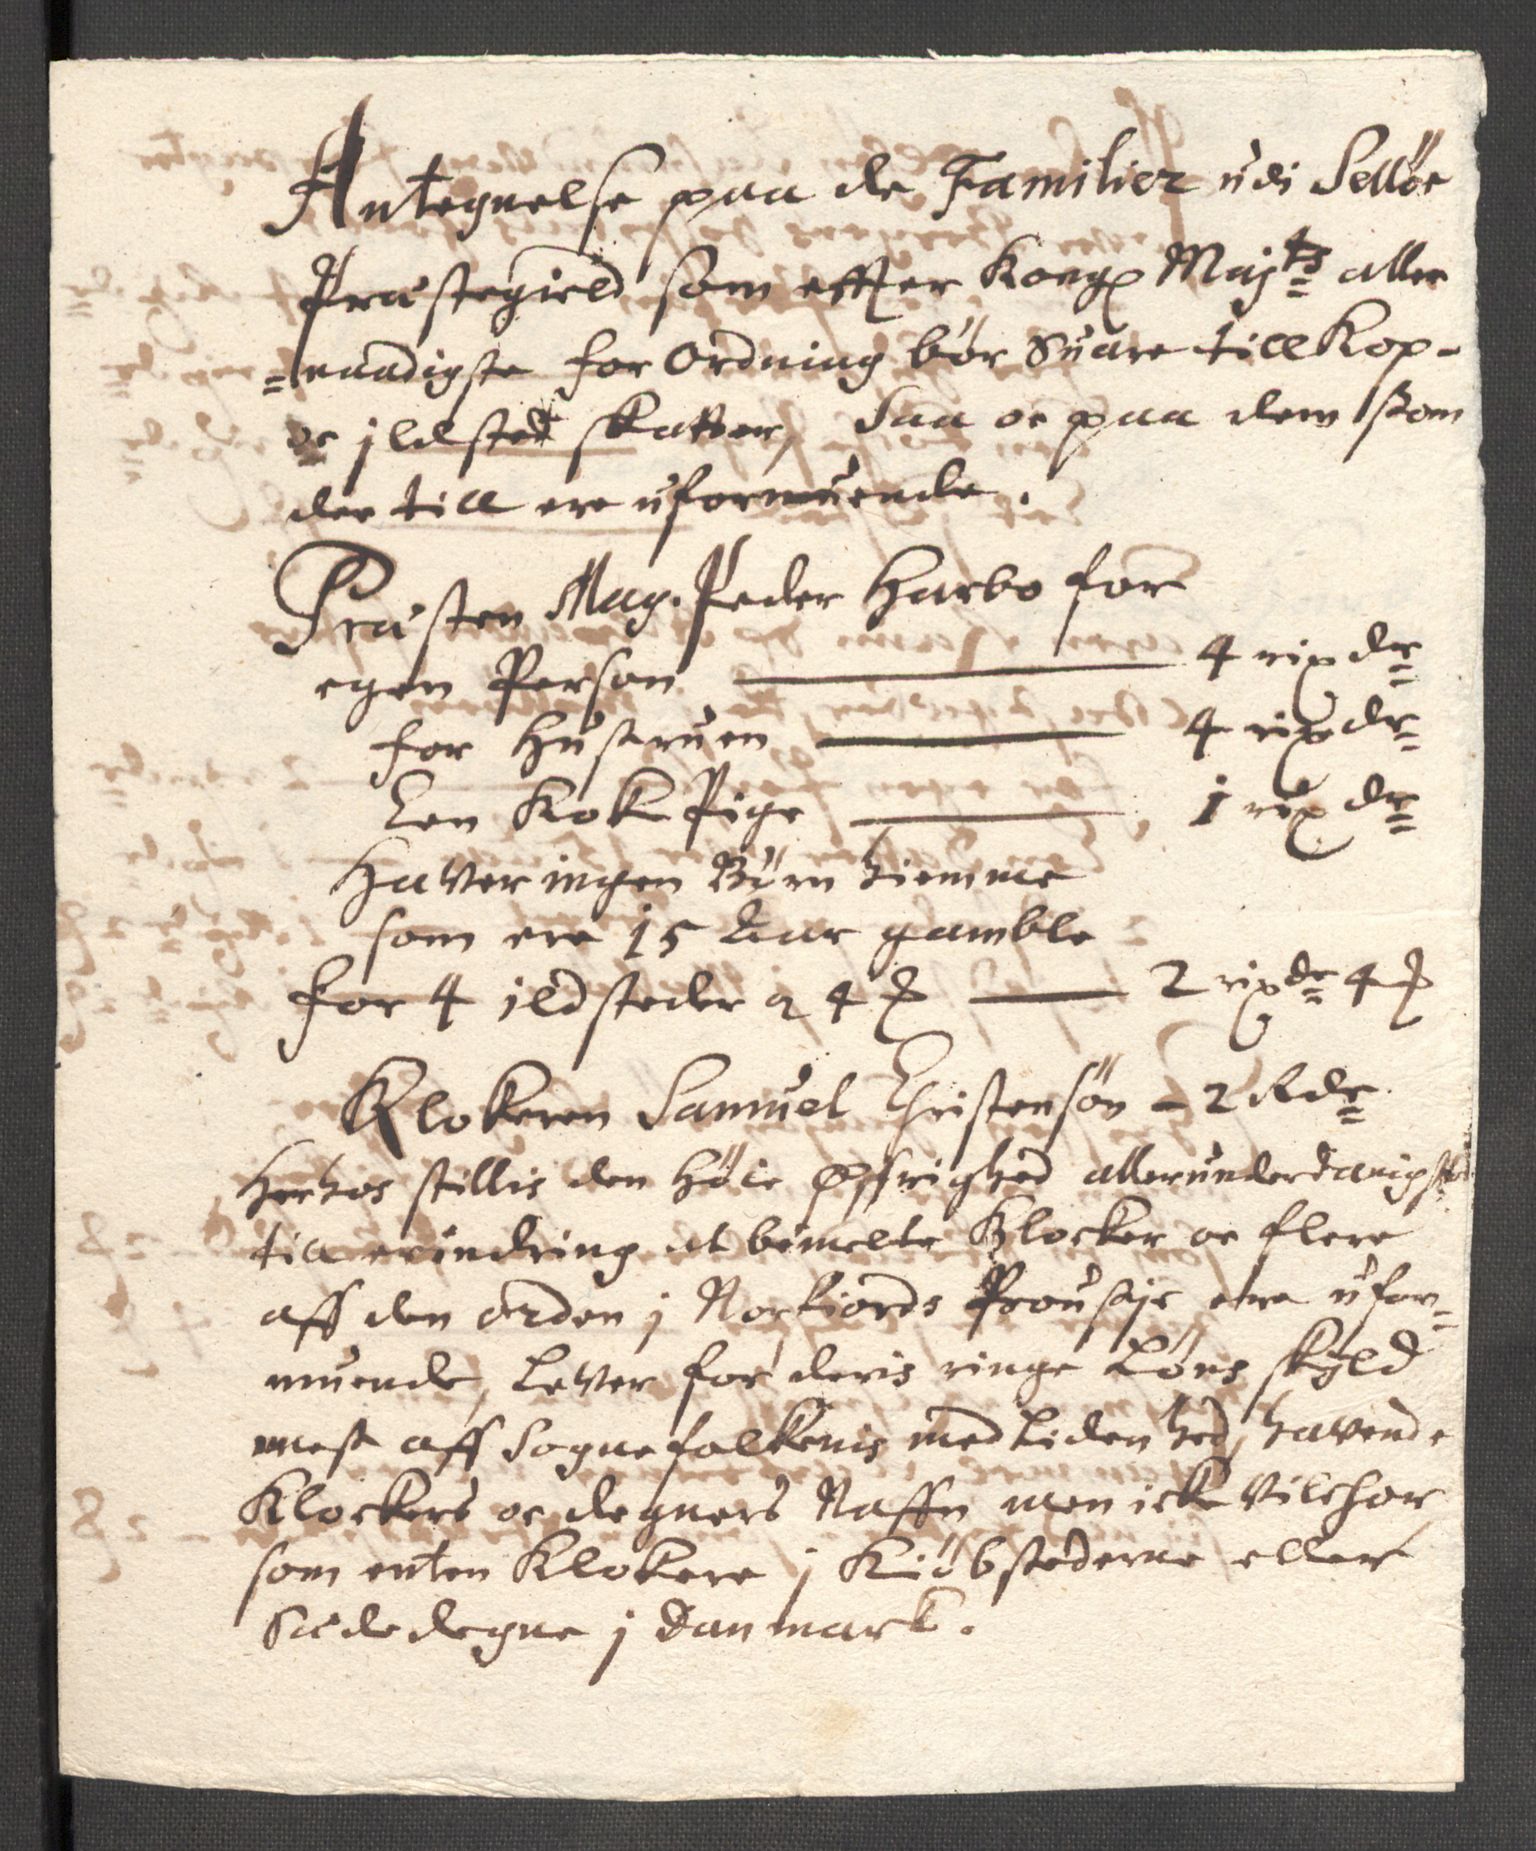 Antegnelse paa de Familier udi Selløe
Præstegield som effter Kongl Majts aller
=naadigste for Ordning bør Suare till Kop-
oc jldsted skatter, Saa oc paa dem som
der till ere uformuende.
Præsten Mag. Peder Harbo for
egen Person — 4 rixdr
for Hustruen — 4 rixdr
Een Kokepige — 1 rixdr
Haver ingen Børn hiemme
som ere 15 Aar gamble
for 4 jldsteder a 4 ß — 2 rixdr 4 ß
Klokeren Samuel Christensøn - 2 Rdr
Herhos stillis den Høie Øffrighed allerunderdanigst
till erindring at bemelte Klocker oc flere
aff den orden j Norfiords Proustje ere ufor=
muende, Lever for deris ringe Løns skyld
mest aff Sognefolkenis medlidenhed, havende
Klockers oc degners Naffn men icke Vilchor
som enten Klokere j Kiøbstederne eller
Sædedegne j Danmark.